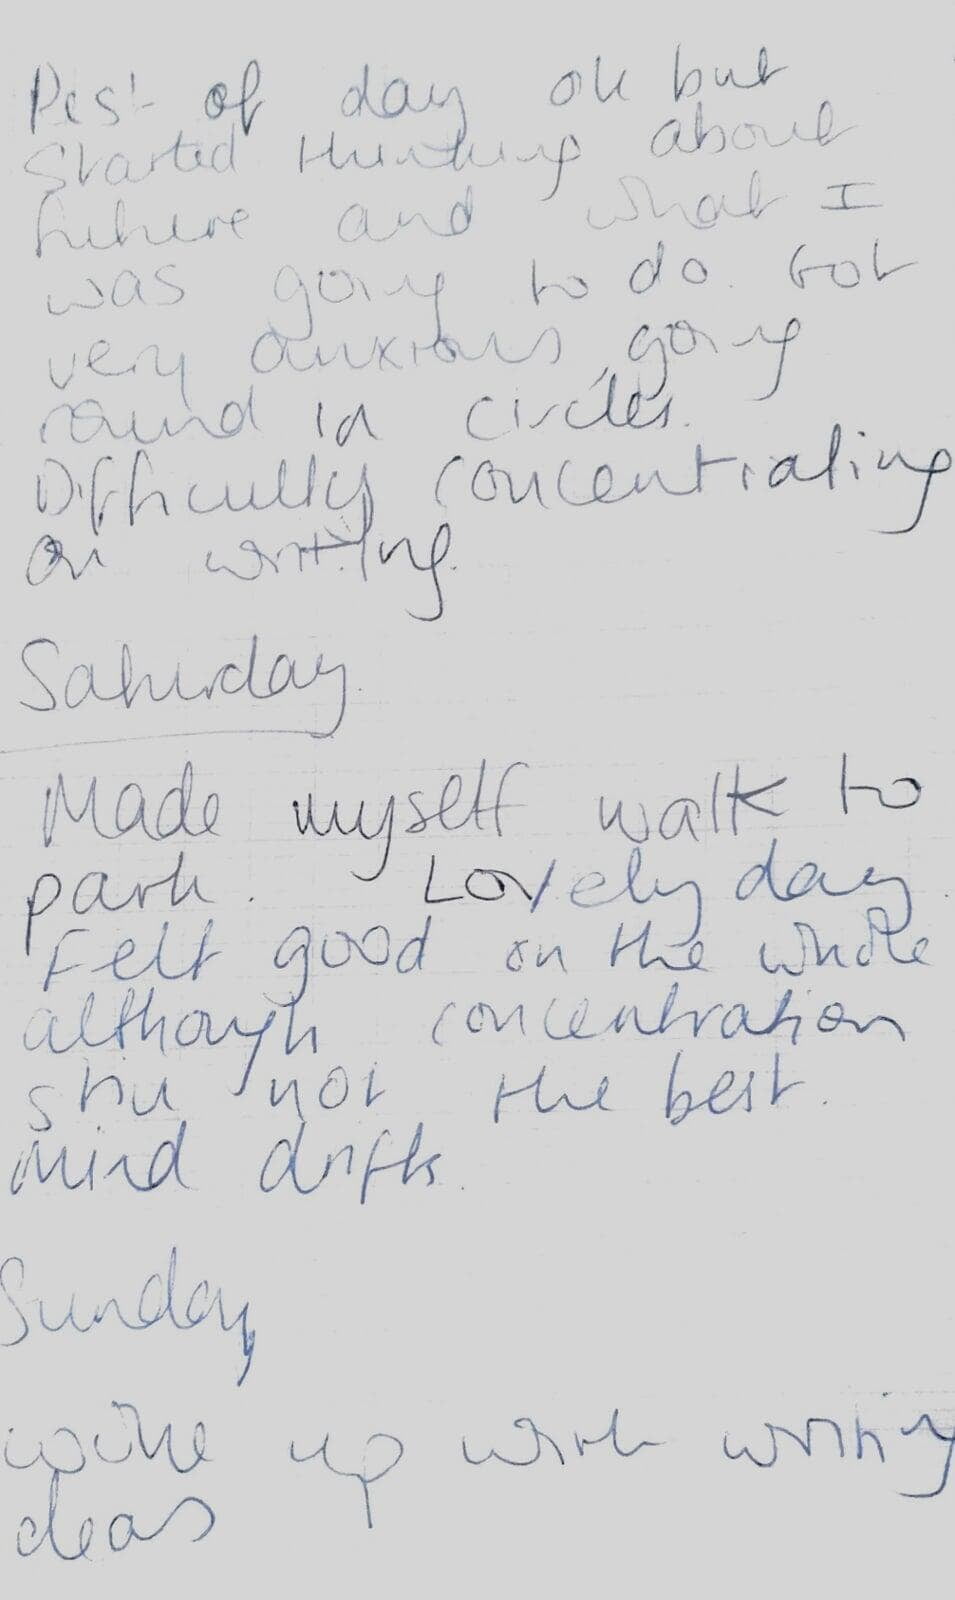 Rest of day ok but
Started thinking about
future and what I
was going to do. Got
very anxious, going
round in circles.
Difficulty concentrating
on writing.
Saturday.
Made myself walk to
park. Lovely day.
Felt good on the whole
although concentration
still not the best.
Mind drifts.
Sunday
woke up with writing
ideas